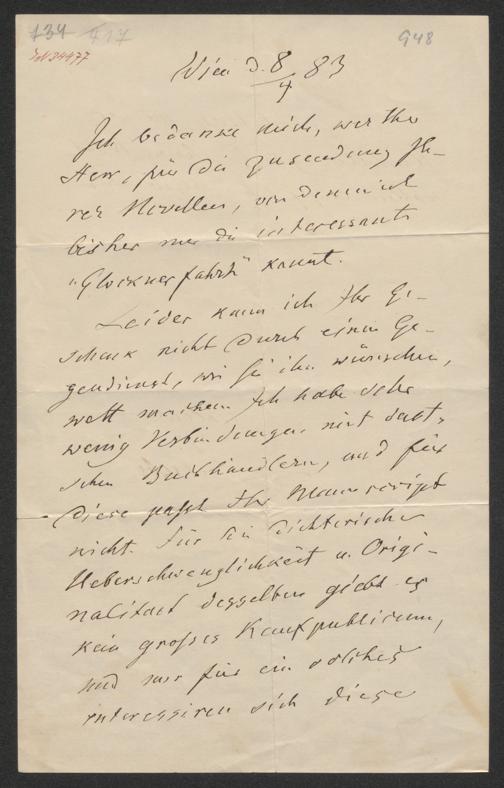 134 417
948
IN 34477
Wien d. 8/4 83
Ich bedanke mich, werther
Herr, für die Zusendung Ih-
rer Novellen, von denen ich
bisher nur die interessante
"Glocknerfahrt" kannte.
Leider kann ich Ihr Ge-
schenk nicht durch einen Ge-
gendienst, wie Sie ihn wünschen,
wett machen. Ich habe sehr
wenig Verbindungen mit deut-
schen Buchhändlern, und für
diese passt Ihr Manuscript
nicht. Für die dichterische
Ueberschwenglichkeit u. Origi-
nalität desselben giebt es
kein großes Kaufpublicum,
und nur für ein solches
interessiren sich diese